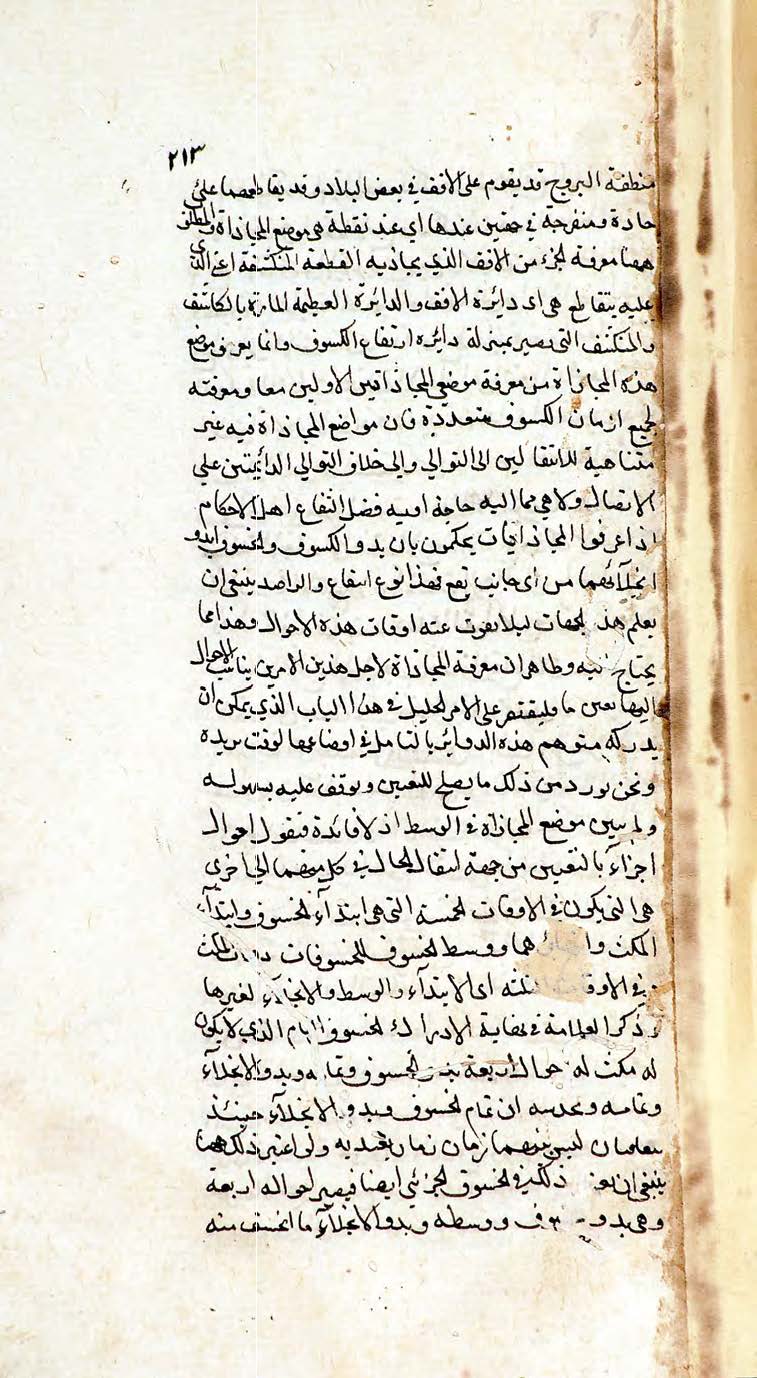 ٢١٣
منطقة البروج قد يقوم على الافق في بعض البلاد وقد يقاطعها على
حادة ومنفرجة في جهتين عندها اي عند نقطة هي موضع المحاذاة والمطلوب
ههنا معرفة الجزء من الافق الذي يحاذيه القطعة المنكشفة اعني الذي
عليه يتقاطع هي اى دائرة الافق والدائرة العظيمة المارة بالكاسف
والمنكسف التي تصير بمنزلة دائرة ارتفاع الكسوف وانما يعرف موضع
هذه المحاذاة من معرفة موضعي المحاذاتين الاوليين معا ومعرفته
لجميع ازمان الكسوف متعددة فان مواضع المحاذاة فيه غير
متناهية للانتقالين الى التوالي والى خلاف التوالي الدائبتين على
الاتصال ولا هي مما اليه حاجة او به فضل انتفاع اهل الاحكام
اذا عرفوا المحاذايات يحكمون بان بدو الكسوف والخسوف او بدو
انجلائهما من اى جانب يقع فهذا نوع انتفاع والراصد ينبغي ان
يعلم هذه الجهات ليلا يفوت عنه اوقات هذه الاحوال وهذا مما
يحتاج اليه وظاهر ان معرفة المحاذاة لاجل هذين الامرين الاحوال
تعين ما فليقتصر على الامر الجليل في هذا الباب الذي يمكن ان
يدركه متوهم هذه الدوائر بالتامل في اوضاعها لوقت يريده
ونحن نورد من ذلك ما يصلح للتعيين ويوقف عليه بسهولة
ولم يبين موضع المحاذاة في الوسط اذ لا فائدة فنقول احوال
اجزاء بالتعيين من جهة انتقال الحال في كل منهما الى اخرى
هي التي يكون في الاوقات الخمسة التي هي ابتداء الخسوف وابتداء
المكث وا هما ووسط الخسوف للخسوفات ذوات المكث
وفي الاوقات الثلثة اى الابتداء والوسط والانجلاء لغيرها
وذكر العلامة في نهاية الادراك للخسوف التام الذي لا يكون
له مكث له احوال اربعة بدو الخسوف وتمامه وبدو الانجلاء
وتمامه ان تمام الخسوف وبدو الانجلاء حينئذ
ليس بينهما زمان يعتد به ولو اعتبر ذلك ههنا
ينبغي ان ذلك في الخسوف الجزئي ايضا فيصير احواله اربعة
وهي بدو ووسطه وبدو الانجلاء ما انخسف منه